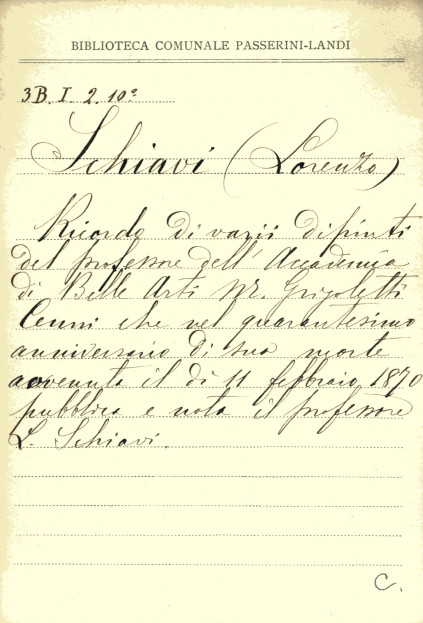 BIBLIOTECA COMUNALE PASSERINI-LANDI
3B. I. 2. 10ª
Schiavi (Lorenzo)
Ricordo di varii dipinti
del professore dell'Accademia
di Belle Arti M. Grigoletti
Cenni che nel quarantesimo
anniversario di sua morte
avvenuta il dì 11 febbraio 1870
pubblica e nota il professore
L. Schiavi.
C.